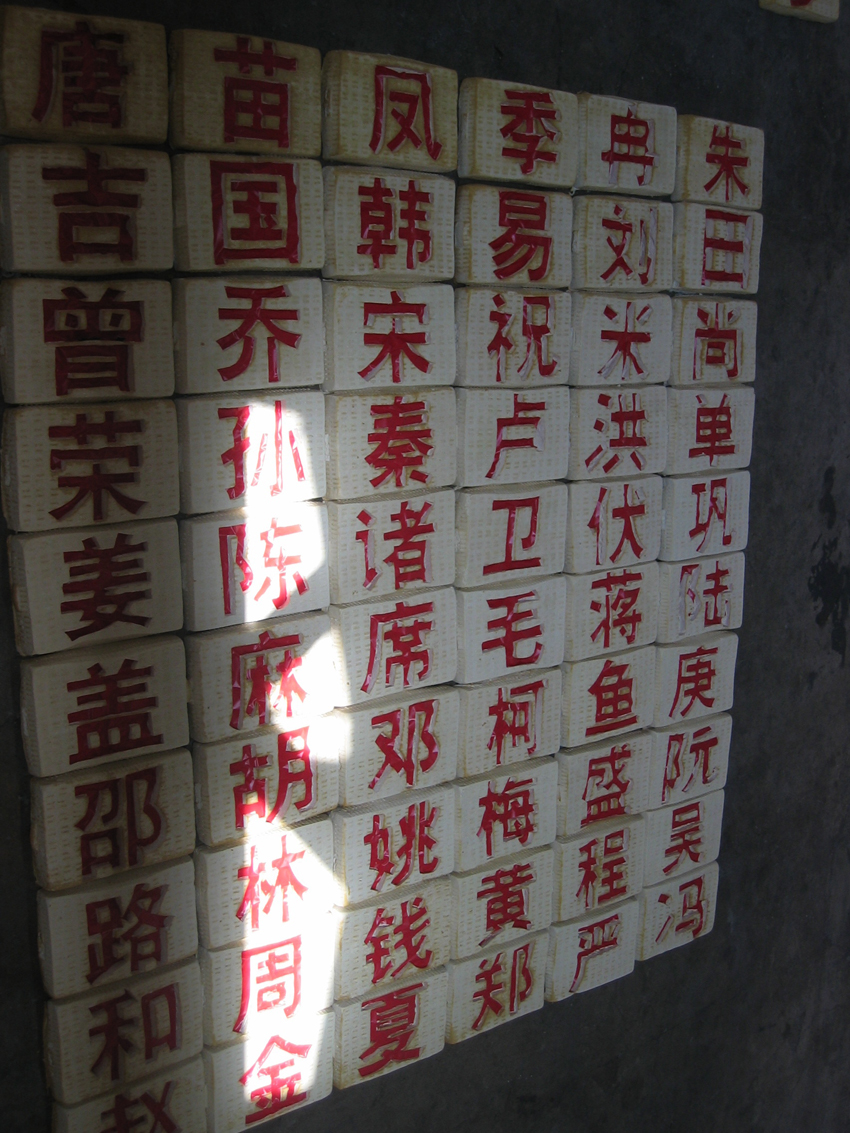 唐 苗 凤 季 冉 朱
吉 国 韩 易 刘 田
曾 乔 宋 祝 米 尚
荣 孙 秦 卢 洪 单
姜 陈 诸 卫 伏 巩
盖 麻 席 毛 蒋 陆
邵 胡 邓 柯 鱼 庚
路 林 姚 梅 盛 阮
和 周 钱 黄 程 吴
赵 金 夏 郑 严 冯